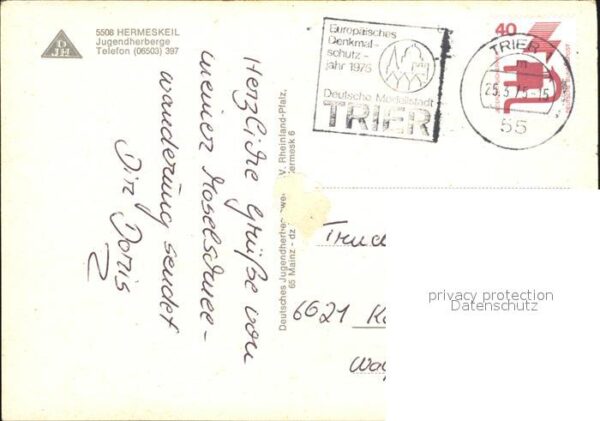 5508 HERMESKEIL
Jugendherberge
Telefon (06503) 397
DJH
Europäisches
Denkmal-
schutz-
jahr 1975
Deutsche Modellstadt
TRIER
40
TRIER
25.3.75-15
55
Herzliche Grüße von
meiner Moselschnee-
wanderung sendet
Dir Doris
Deutsches Jugendherbergswe
V. Rheinland-Pfalz,
65 Mainz - dz
ermesk 6
Trude
6621
privacy protection
Datenschutz